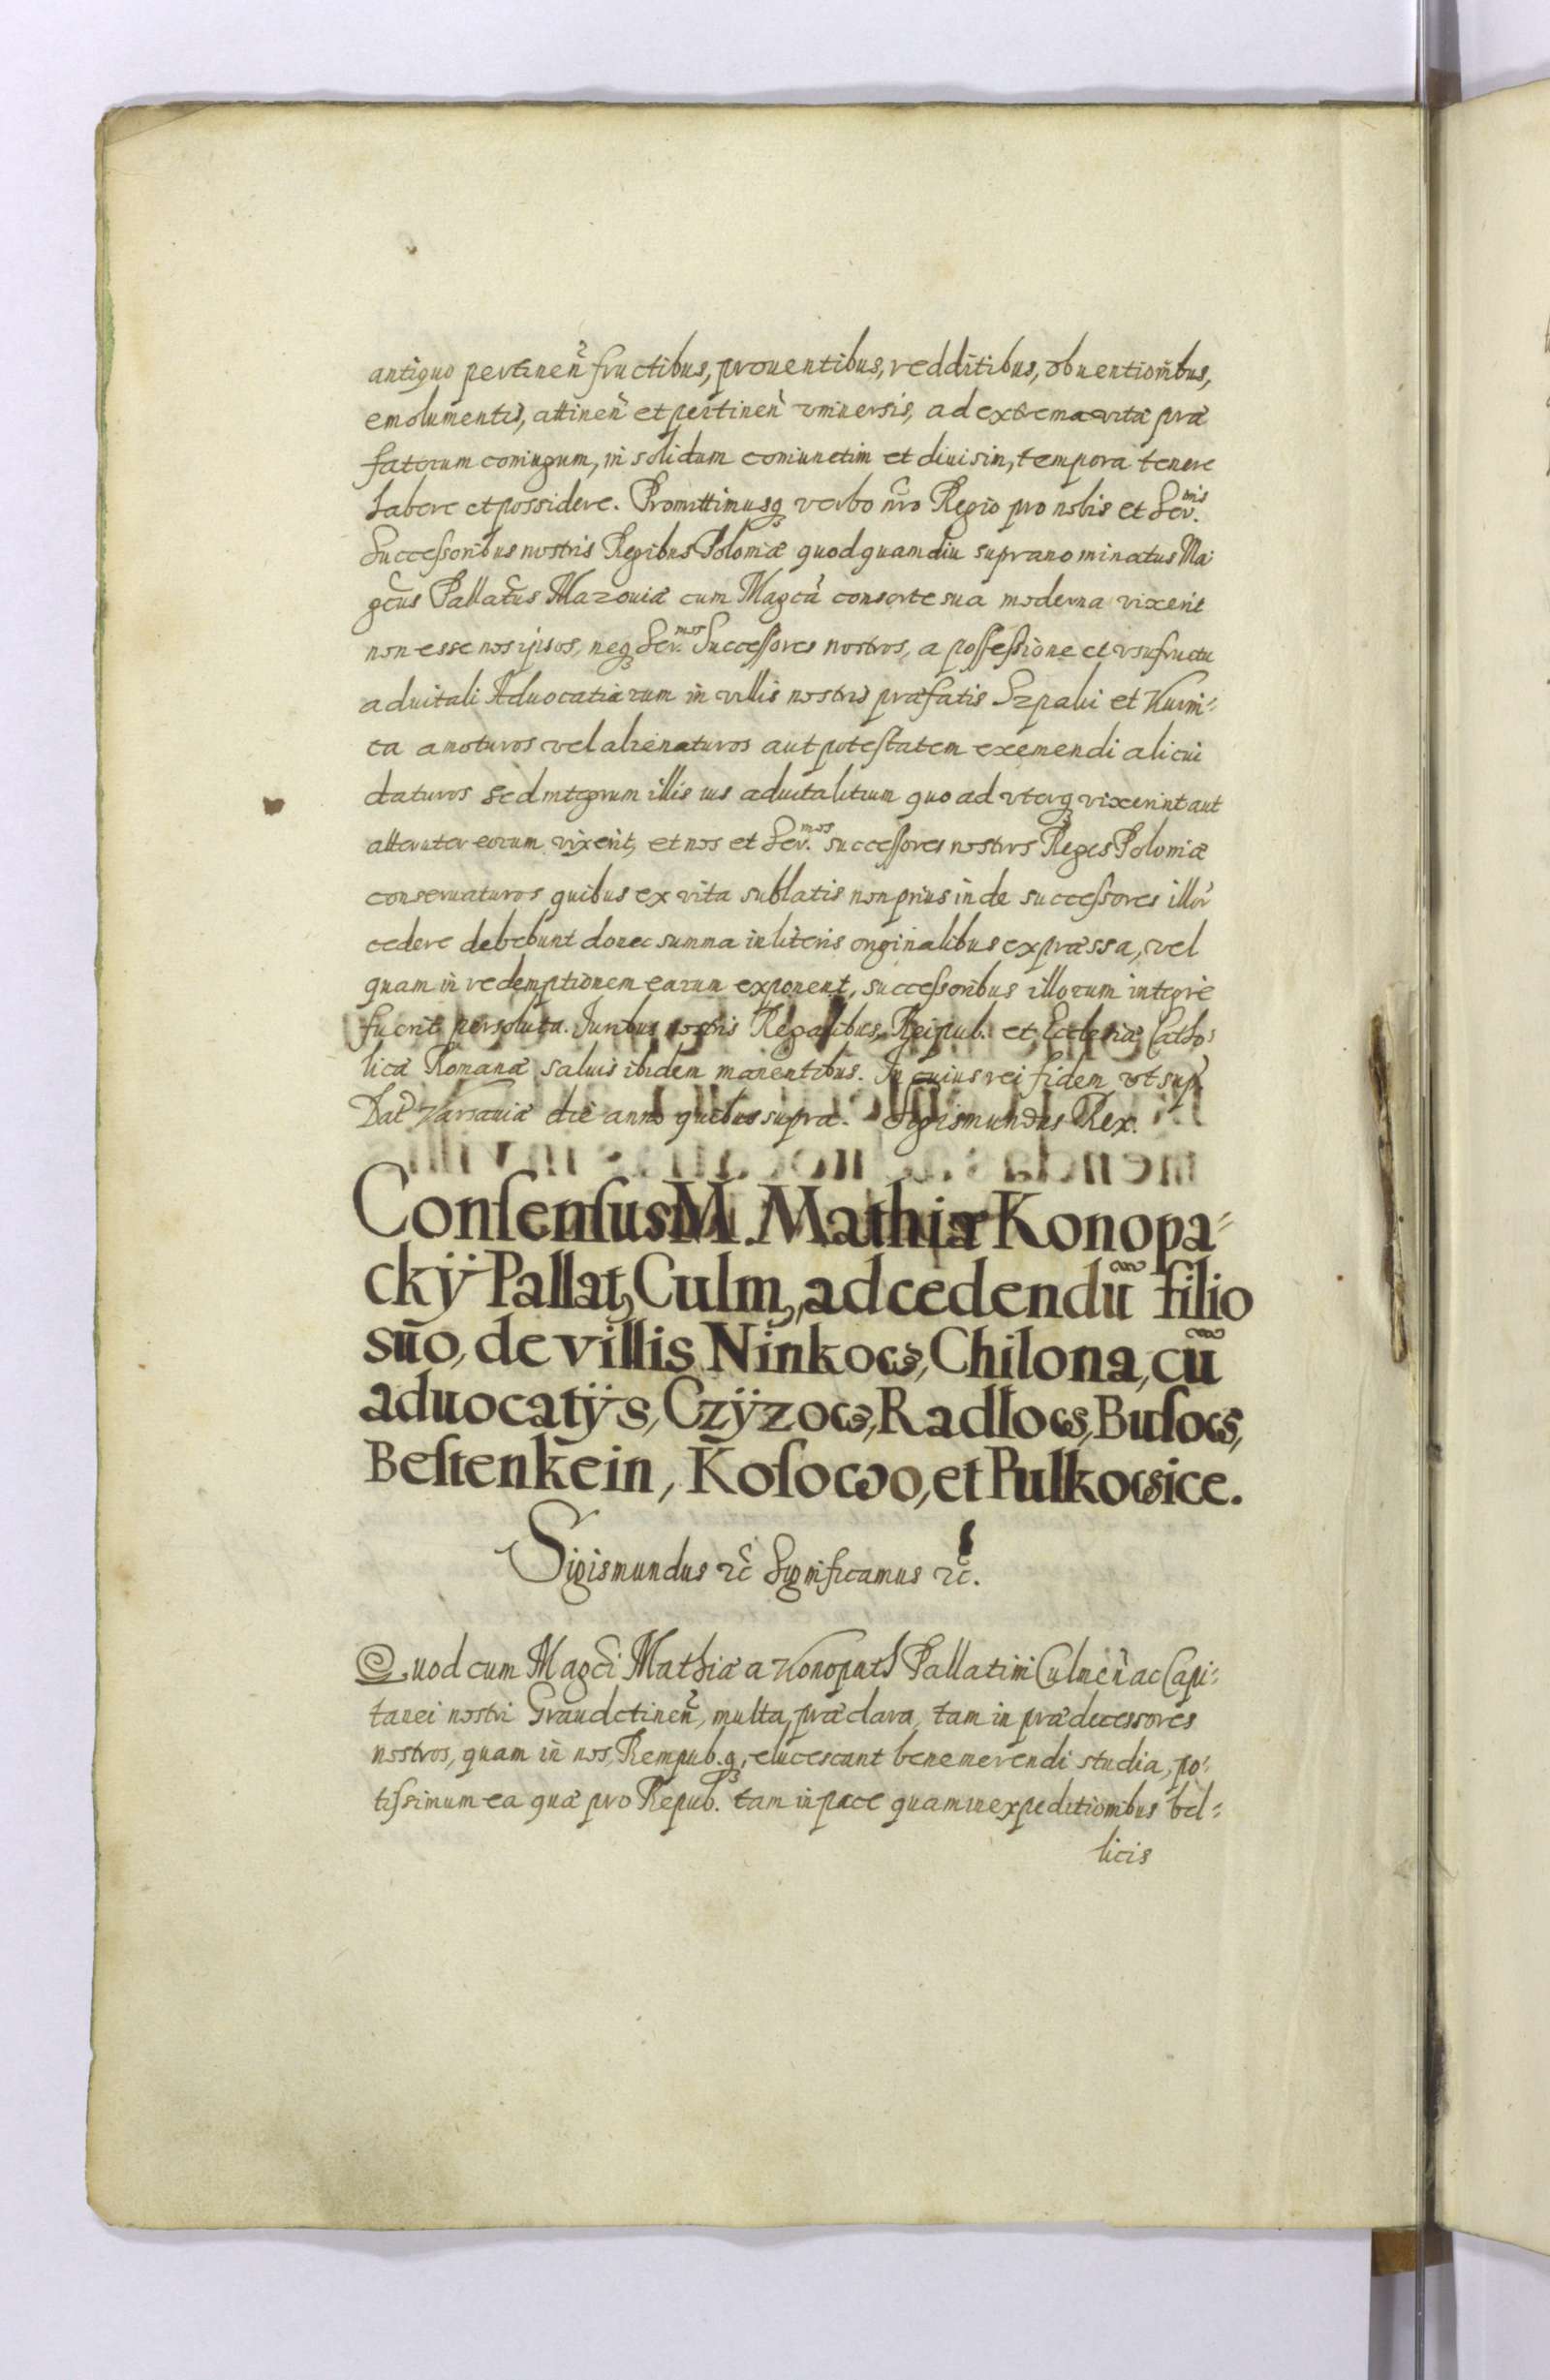 antiquo pertinen̄ fructibus, prouentibus, redditibus, obuentiom̄bus,
emolumentis, attinen̄ et pertinen̄ vniuersis, ad extrema vitæ præ
fatorum coniugum, in solidum coniunctim et diuisin, tempora tenere
habere et possidere. Promittimusq₃ verbo nr̄o Regio pro nobis et Ser.mis
Successoribus nostris Regibus Poloniæ quod quamdiu supranominatus Ma:
gc̄us Pallat̄us Mazouiæ cum Magcā consorte sua moderna vixerit
non esse nos ipsos, neq₃ Ser.mos Successores nostros, a possessione et vsufructu
aduitali Aduocatiarum in villis nostris præfatis Szpaki et Kurni:
ca amoturos vel alienaturos aut potestatem exemendi alicui
daturos sed integrum illis ius aduitalitium quo ad vterq₃ vixerint aut
alteruter eorum vixerit, et nos et Ser.mos successores nostros Reges Poloniæ
conseruaturos quibus ex vita sublatis non prius inde successores illor̄
cedere debebunt donec summa in literis originalibus expræssa, vel
quam in redemptionem earum exponent, successoribus illorum integre
fuerit persoluta. Iuribus nostris Regalibus, Reipub. et Ecclesiæ Catho:
licæ Romanæ saluis ibidem manentibus. In cuius rei fidem vt sup̄.
Dat̄ Varsauiæ die anno quibus supra. Sigismundus Rex.
Consensus M. Mathiæ Konopa:
ckÿ Pallat, Culm, ad cedendū filio
sūo, de villis Ninkow, Chilona, cū
aduocatÿs, Czÿzow, Radłows, Busows,
Bestenkein, Kosowo, et Pulkowsice.
Sigismundus rc̄ Significamus rc̄.
Quod cum Magc̄i Mathiæ a Konopath Pallatini Culmen̄ ac Capi:
tanei nostri Graudctinen̄, multa, præclara, tam in prædecessores
nostros, quam in nos, Rempub.q₃, elucescant benemerendi studia, po:
tissimum ea quæ pro Repub. tam in pace quam in expeditionibus bel:
licis